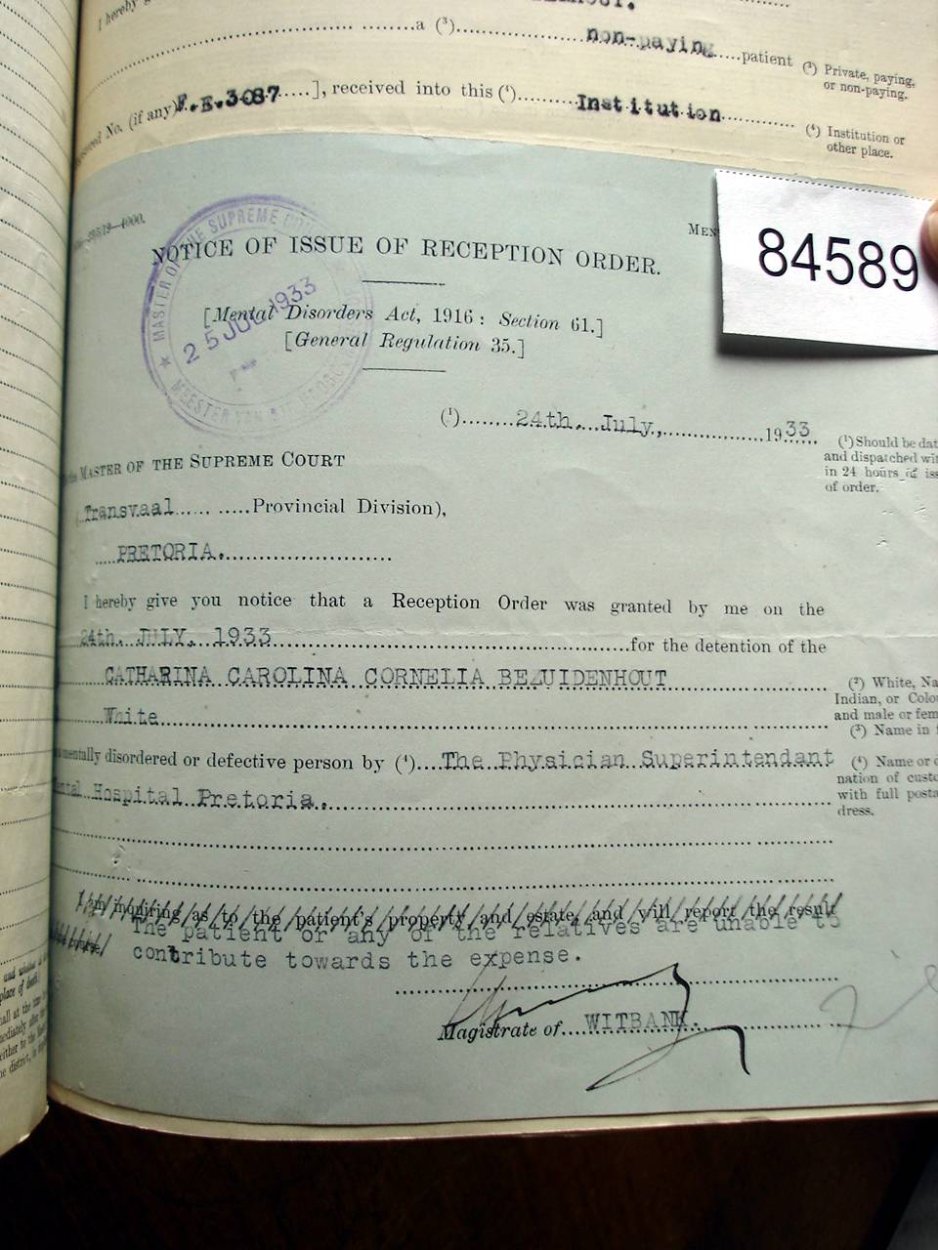 I hereby g
a (³) non-paying patient (³) Private, paying,
or non-paying.
No. (if any) F.E.3087 ], received into this (⁴) Institution
(⁴) Institution or
other place.
84589
—4000.
NOTICE OF ISSUE OF RECEPTION ORDER.
MASTER OF THE SUPREME
25 JUL 1933
MEESTER VAN
[Mental Disorders Act, 1916: Section 61.]
[General Regulation 35.]
(¹) 24th. July, 1933
(¹) Should be dat
and dispatched wit
in 24 hours of iss
of order.
MASTER OF THE SUPREME COURT
(Transvaal Provincial Division),
PRETORIA.
I hereby give you notice that a Reception Order was granted by me on the
24th. JULY, 1933 for the detention of the
CATHARINA CAROLINA CORNELIA BEZUIDENHOUT
White
(²) White, Na
Indian, or Colo
and male or fem
(³) Name in f
mentally disordered or defective person by (⁴) The Physician Superintendant
Hospital Pretoria.
(⁴) Name or d
nation of custo
with full posta
dress.
as to the patient's property and estate, and will report the result
The patient or any of the relatives are unable to
contribute towards the expense.
Magistrate of WITBANK.